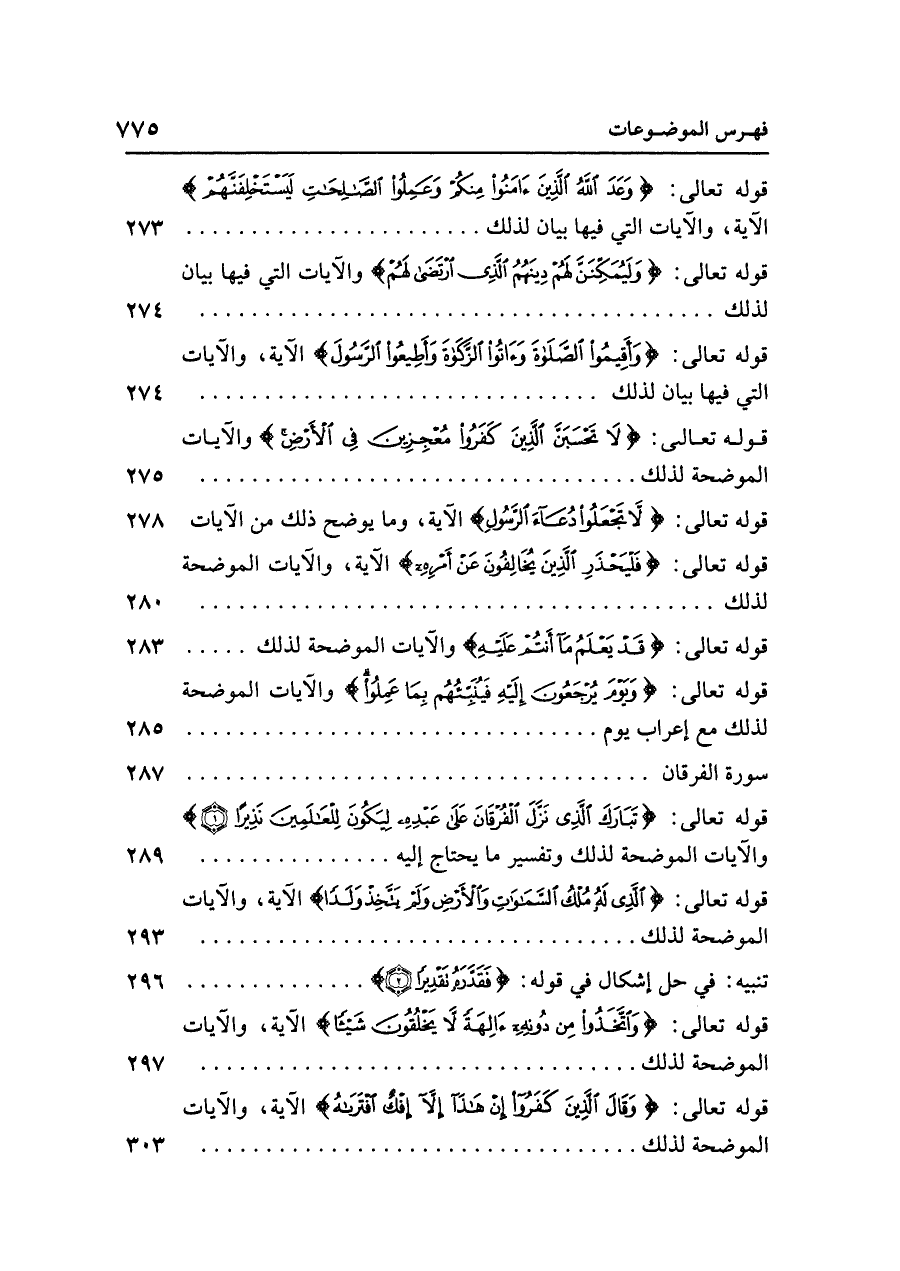 فهـرس الموضـوعات ٧٧٥
قوله تعالى: ﴿وَعَدَ ٱللَّهُ ٱلَّذِينَ ءَامَنُواْ مِنكُمْ وَعَمِلُواْ ٱلصَّـٰلِحَـٰتِ لَيَسْتَخْلِفَنَّهُمْ﴾
الآية، والآيات التي فيها بيان لذلك . . . . . . . . . . . . . . . . . . . . . . . ٢٧٣
قوله تعالى: ﴿وَلَيُمَكِّنَنَّ لَهُمْ دِينَهُمُ ٱلَّذِى ٱرْتَضَىٰ لَهُمْ﴾ والآيات التي فيها بيان
لذلك . . . . . . . . . . . . . . . . . . . . . . . . . . . . . . . . . . . . . . . . ٢٧٤
قوله تعالى: ﴿وَأَقِيمُواْ ٱلصَّلَوٰةَ وَءَاتُواْ ٱلزَّكَوٰةَ وَأَطِيعُواْ ٱلرَّسُولَ﴾ الآية، والآيات
التي فيها بيان لذلك . . . . . . . . . . . . . . . . . . . . . . . . . . . . . . . ٢٧٤
قـولـه تعـالـى: ﴿لَا تَحْسَبَنَّ ٱلَّذِينَ كَفَرُواْ مُعْجِزِينَ فِى ٱلْأَرْضِۚ﴾ والآيـات
الموضحة لذلك . . . . . . . . . . . . . . . . . . . . . . . . . . . . . . . . . . ٢٧٥
قوله تعالى: ﴿لَّا تَجْعَلُواْ دُعَآءَ ٱلرَّسُولِ﴾ الآية، وما يوضح ذلك من الآيات ٢٧٨
قوله تعالى: ﴿فَلْيَحْذَرِ ٱلَّذِينَ يُخَالِفُونَ عَنْ أَمْرِهِۦٓ﴾ الآية، والآيات الموضحة
لذلك . . . . . . . . . . . . . . . . . . . . . . . . . . . . . . . . . . . . . . . . ٢٨٠
قوله تعالى: ﴿قَدْ يَعْلَمُ مَآ أَنتُمْ عَلَيْهِ﴾ والآيات الموضحة لذلك . . . . . ٢٨٣
قوله تعالى: ﴿وَيَوْمَ يُرْجَعُونَ إِلَيْهِ فَيُنَبِّئُهُم بِمَا عَمِلُواْۗ﴾ والآيات الموضحة
لذلك مع إعراب يوم . . . . . . . . . . . . . . . . . . . . . . . . . . . . . . . . ٢٨٥
سورة الفرقان . . . . . . . . . . . . . . . . . . . . . . . . . . . . . . . . . . . . ٢٨٧
قوله تعالى: ﴿تَبَارَكَ ٱلَّذِى نَزَّلَ ٱلْفُرْقَانَ عَلَىٰ عَبْدِهِۦ لِيَكُونَ لِلْعَـٰلَمِينَ نَذِيرًا ۝١﴾
والآيات الموضحة لذلك وتفسير ما يحتاج إليه . . . . . . . . . . . . . . . ٢٨٩
قوله تعالى: ﴿ٱلَّذِى لَهُۥ مُلْكُ ٱلسَّمَـٰوَٰتِ وَٱلْأَرْضِ وَلَمْ يَتَّخِذْ وَلَدًا﴾ الآية، والآيات
الموضحة لذلك . . . . . . . . . . . . . . . . . . . . . . . . . . . . . . . . . . ٢٩٣
تنبيه: في حل إشكال في قوله: ﴿فَقَدَّرَهُۥ تَقْدِيرًا ۝٢﴾ . . . . . . . . . . . . . . ٢٩٦
قوله تعالى: ﴿وَٱتَّخَذُواْ مِن دُونِهِۦٓ ءَالِهَةً لَّا يَخْلُقُونَ شَيْـًٔا﴾ الآية، والآيات
الموضحة لذلك . . . . . . . . . . . . . . . . . . . . . . . . . . . . . . . . . . ٢٩٧
قوله تعالى: ﴿وَقَالَ ٱلَّذِينَ كَفَرُوٓاْ إِنْ هَـٰذَآ إِلَّآ إِفْكٌ ٱفْتَرَىٰهُ﴾ الآية، والآيات
الموضحة لذلك . . . . . . . . . . . . . . . . . . . . . . . . . . . . . . . . . . ٣٠٣